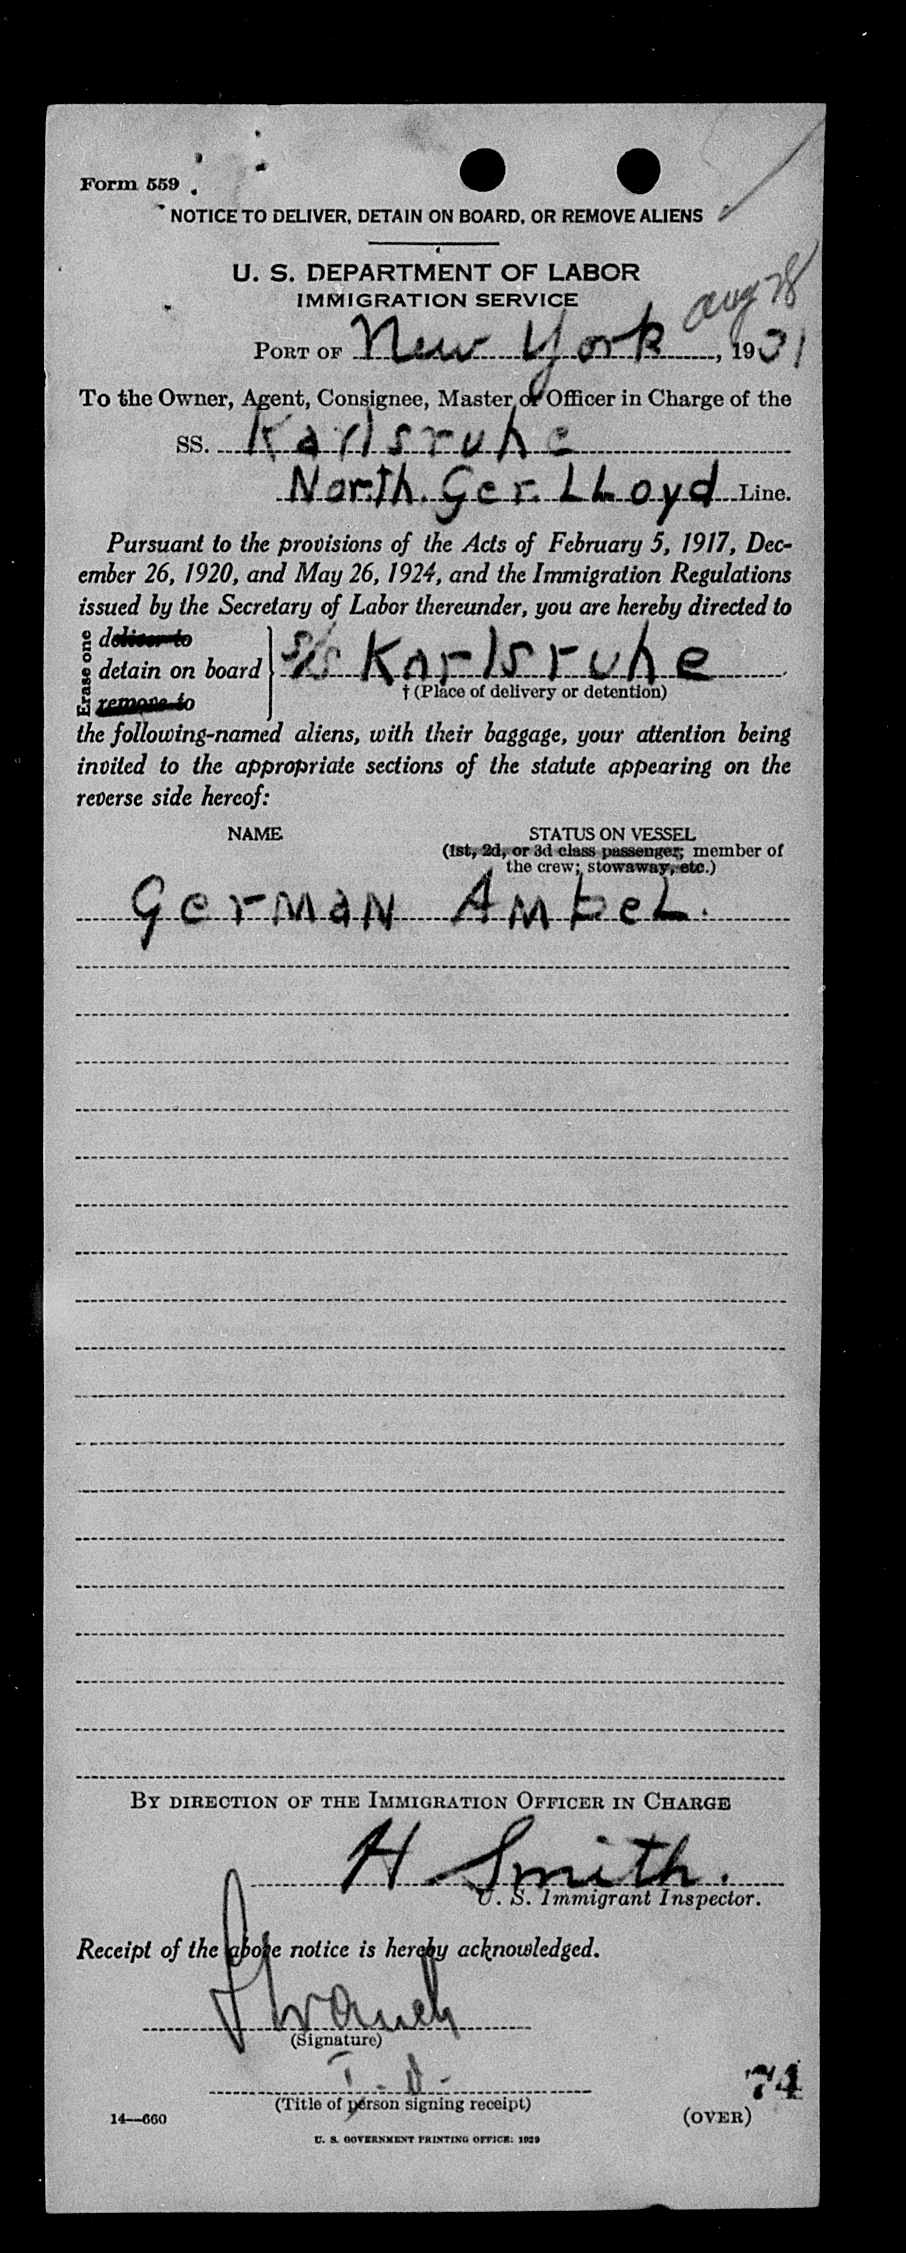 Form 559
NOTICE TO DELIVER, DETAIN ON BOARD, OR REMOVE ALIENS
U. S. DEPARTMENT OF LABOR
IMMIGRATION SERVICE
Aug 28
PORT OF New York, 1931
To the Owner, Agent, Consignee, Master or Officer in Charge of the
SS. Karlsruhe
North. Ger. LLoyd Line.
Pursuant to the provisions of the Acts of February 5, 1917, Dec-
ember 26, 1920, and May 26, 1924, and the Immigration Regulations
issued by the Secretary of Labor thereunder, you are hereby directed to
Erase one
deliver to
detain on board S/S Karlsruhe
remove to
† (Place of delivery or detention)
the following-named aliens, with their baggage, your attention being
invited to the appropriate sections of the statute appearing on the
reverse side hereof:
NAME STATUS ON VESSEL
(1st, 2d, or 3d class passenger; member of
the crew; stowaway, etc.)
German Ampel.
BY DIRECTION OF THE IMMIGRATION OFFICER IN CHARGE
H Smith.
U. S. Immigrant Inspector.
Receipt of the above notice is hereby acknowledged.
(Signature)
(Title of person signing receipt)
74
14—660 (OVER)
U. S. GOVERNMENT PRINTING OFFICE: 1929